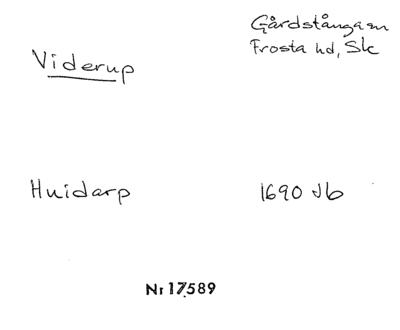 Gårdstånga sn
Viderup
Frosta hd, Sk
Huidarp
1690 Jb
Nr 17589